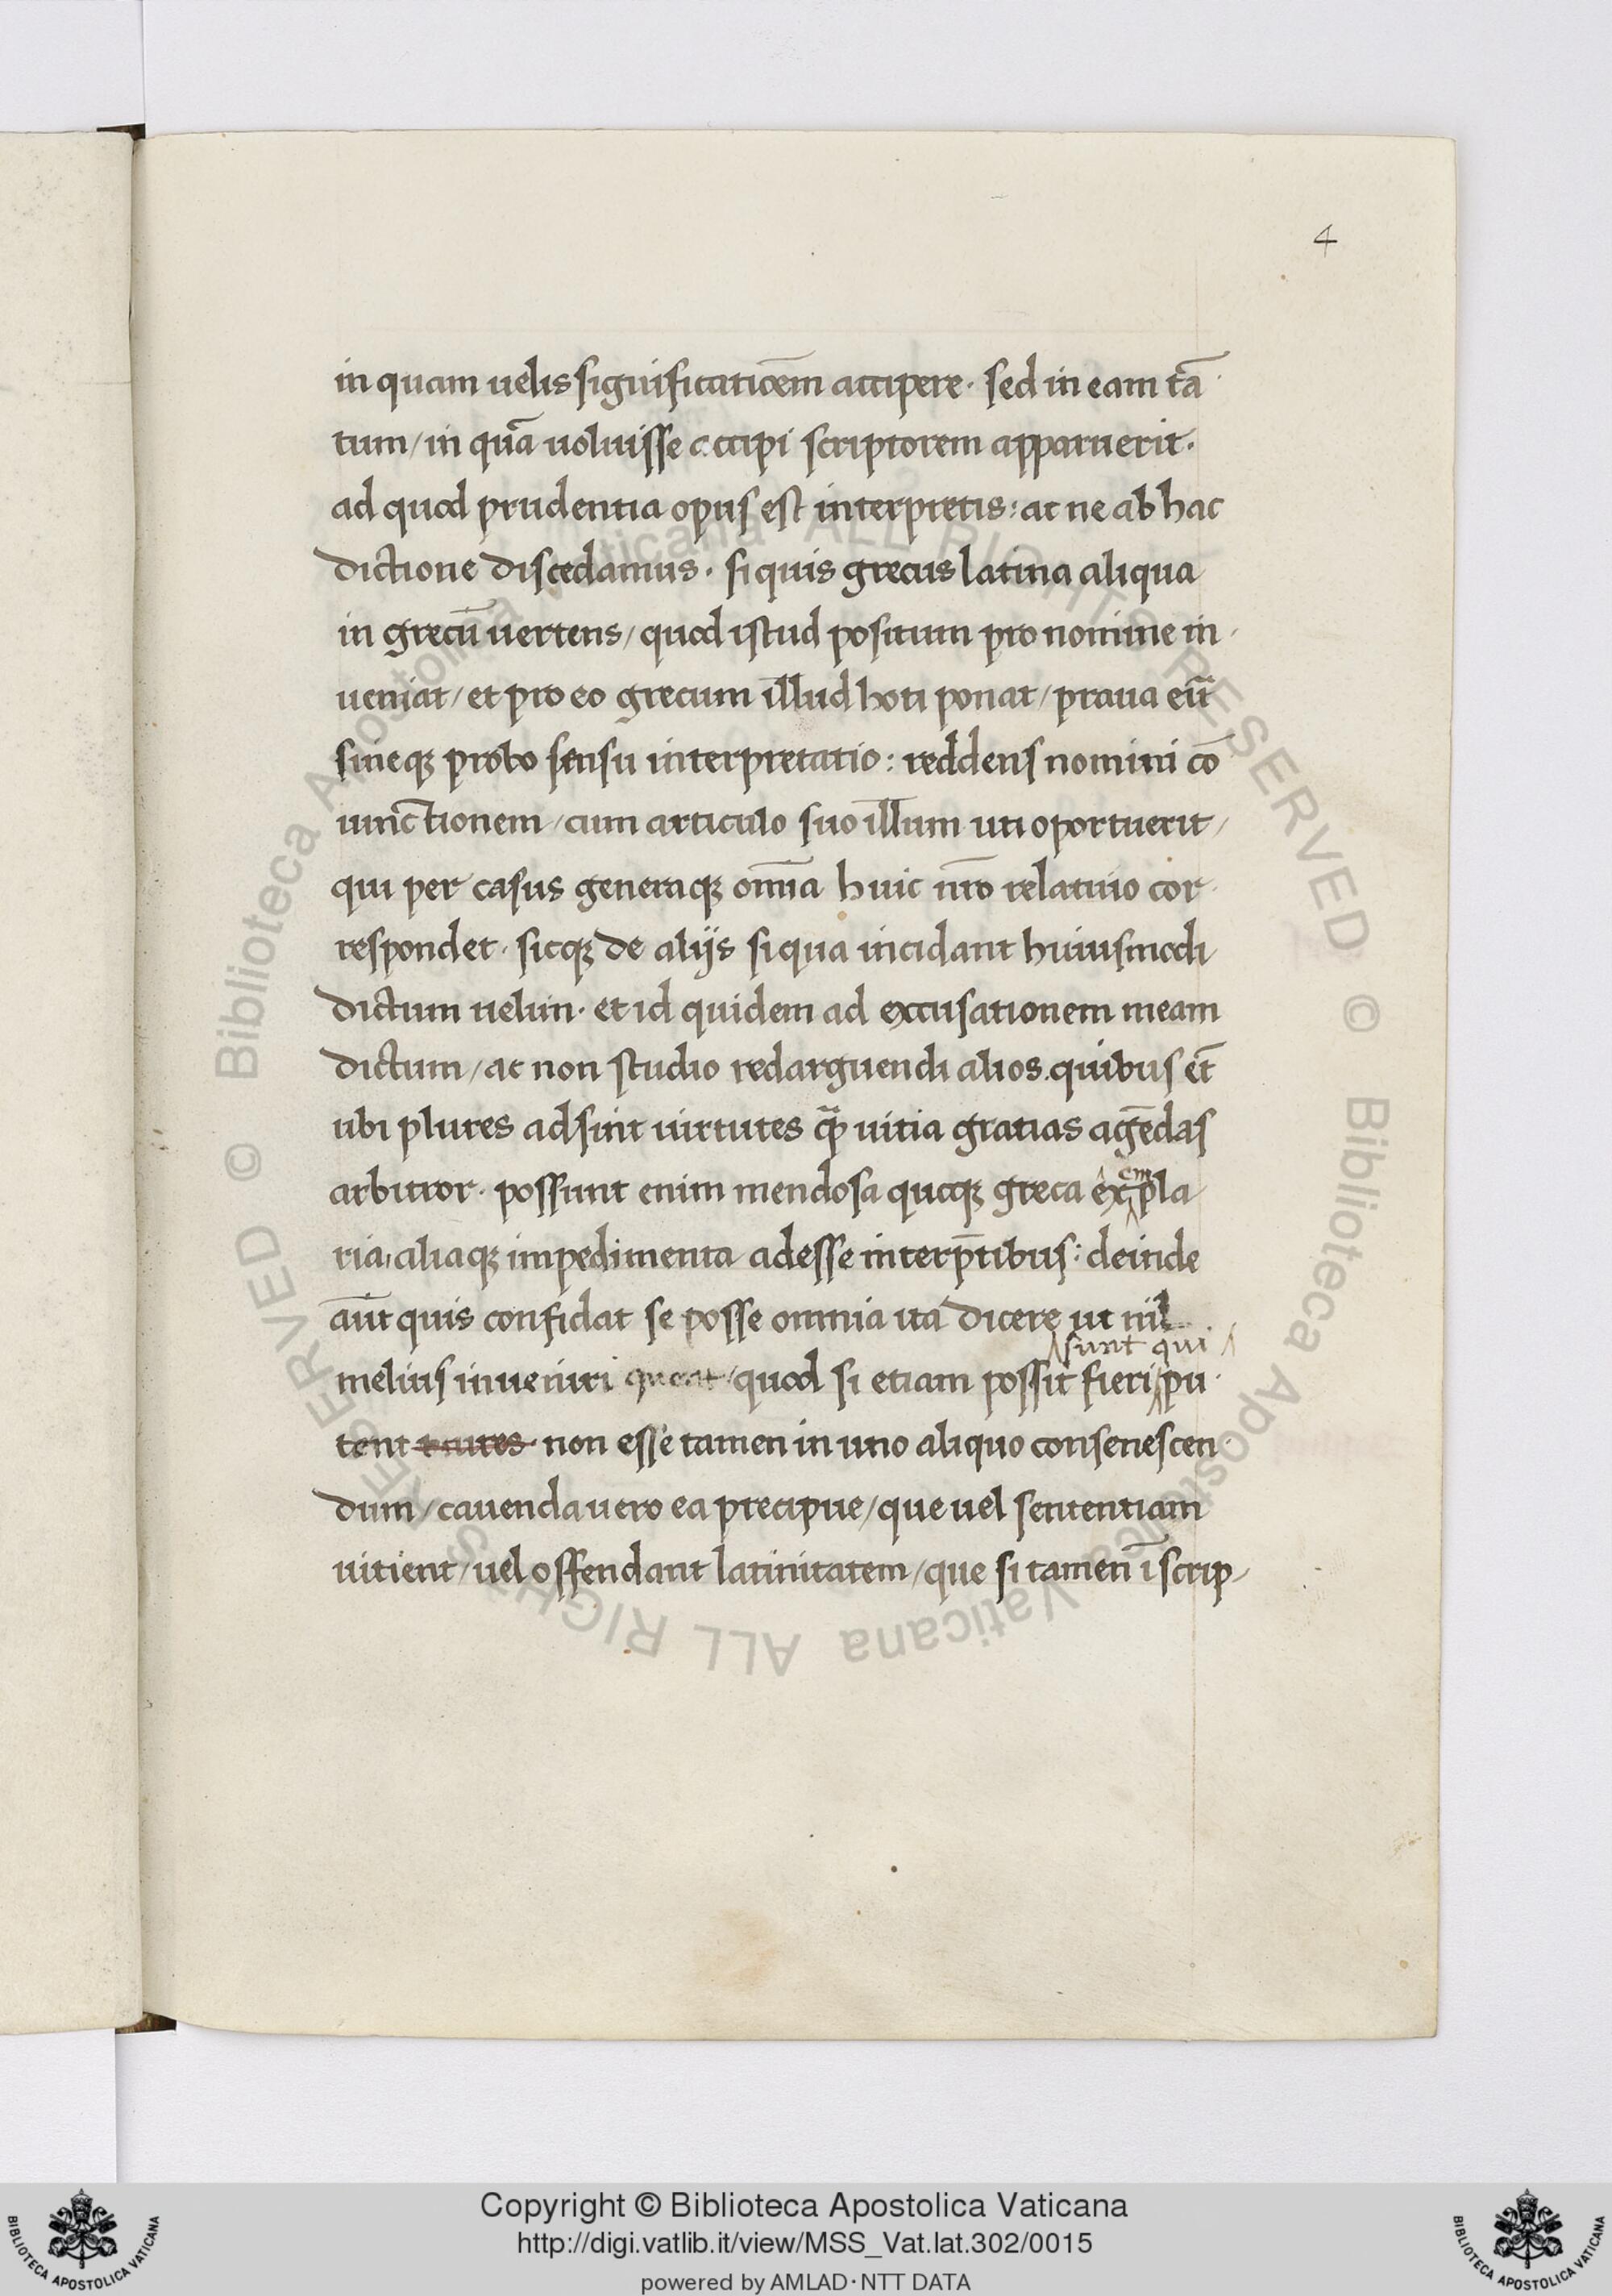 4
in quam uelis significatiōem accipere· sed in eam tā
tum/ in quā uoluisse accipi scriptorem apparuerit·
ad quod prudentia opus est interpretis: at ne ab hac
dictione discedamus· si quis grecus latina aliqua
in grecū uertens/ quod istud positum pro nomine in
ueniat/ et pro eo grecum illud hoti ponat/ praua erit
sineqꝫ probo sensu interpretatio: reddens nomini cō
iunctionem/ cum articulo suo illum uti oportuerit/
qui per casus generaqꝫ om̄ia huic nr̄o relatiuo cor
respondet· sicqꝫ de alijs siqua incidant huiusmodi
dictum uelim· et id quidem ad excusationem meam
dictum/ ac non studio redarguendi alios. quibus et̄
ubi plures adsint uirtutes qꝫ̄ uitia gratias agēdas
arbitror· possunt enim mendosa queqꝫ greca exempla
ria/ aliaqꝫ impedimenta adesse interp̄tibus: deinde
aūt quis confidat se posse omnia ita dicere ut nil
sunt qui
melius inueniri queat/ quod si etiam possit fieri pu
tent non esse tamen in uno aliquo consenescen
dum/ cauenda uero ea precipue/ que uel sententiam
uitient/ uel offendant latinitatem/ que si tamen ī scrip
Copyright © Biblioteca Apostolica Vaticana
http://digi.vatlib.it/view/MSS_Vat.lat.302/0015
powered by AMLAD·NTT DATA